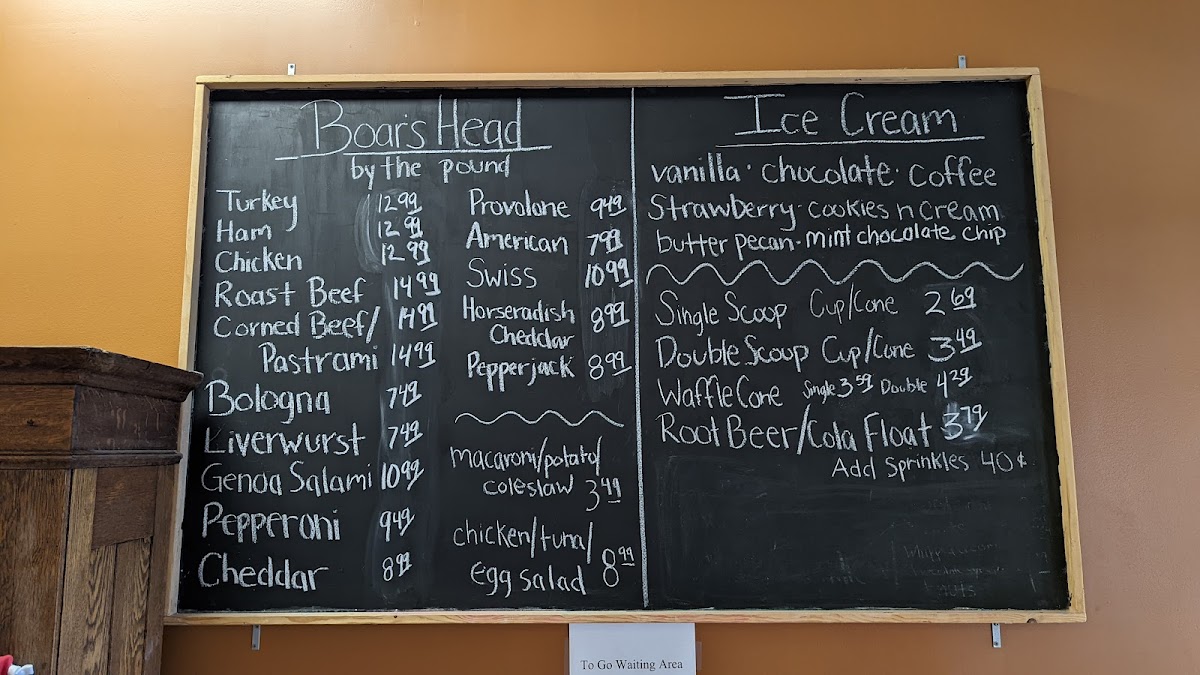 Boar's Head
by the pound
Turkey 12.99
Ham 12.99
Chicken 12.99
Roast Beef 14.99
Corned Beef/ 14.99
Pastrami 14.99
Bologna 7.49
Liverwurst 7.49
Genoa Salami 10.99
Pepperoni 9.49
Cheddar 8.99
Provolone 9.49
American 7.99
Swiss 10.99
Horseradish
Cheddar 8.99
Pepperjack 8.99
macaroni/potato/
coleslaw 3.49
chicken/tuna/
egg salad 8.99
Ice Cream
vanilla · chocolate · coffee
Strawberry · cookies n cream
butter pecan · mint chocolate chip
Single Scoop Cup/Cone 2.69
Double Scoop Cup/Cone 3.49
Waffle Cone Single 3.59 Double 4.29
Root Beer/Cola Float 3.79
Add Sprinkles 40¢
To Go Waiting Area